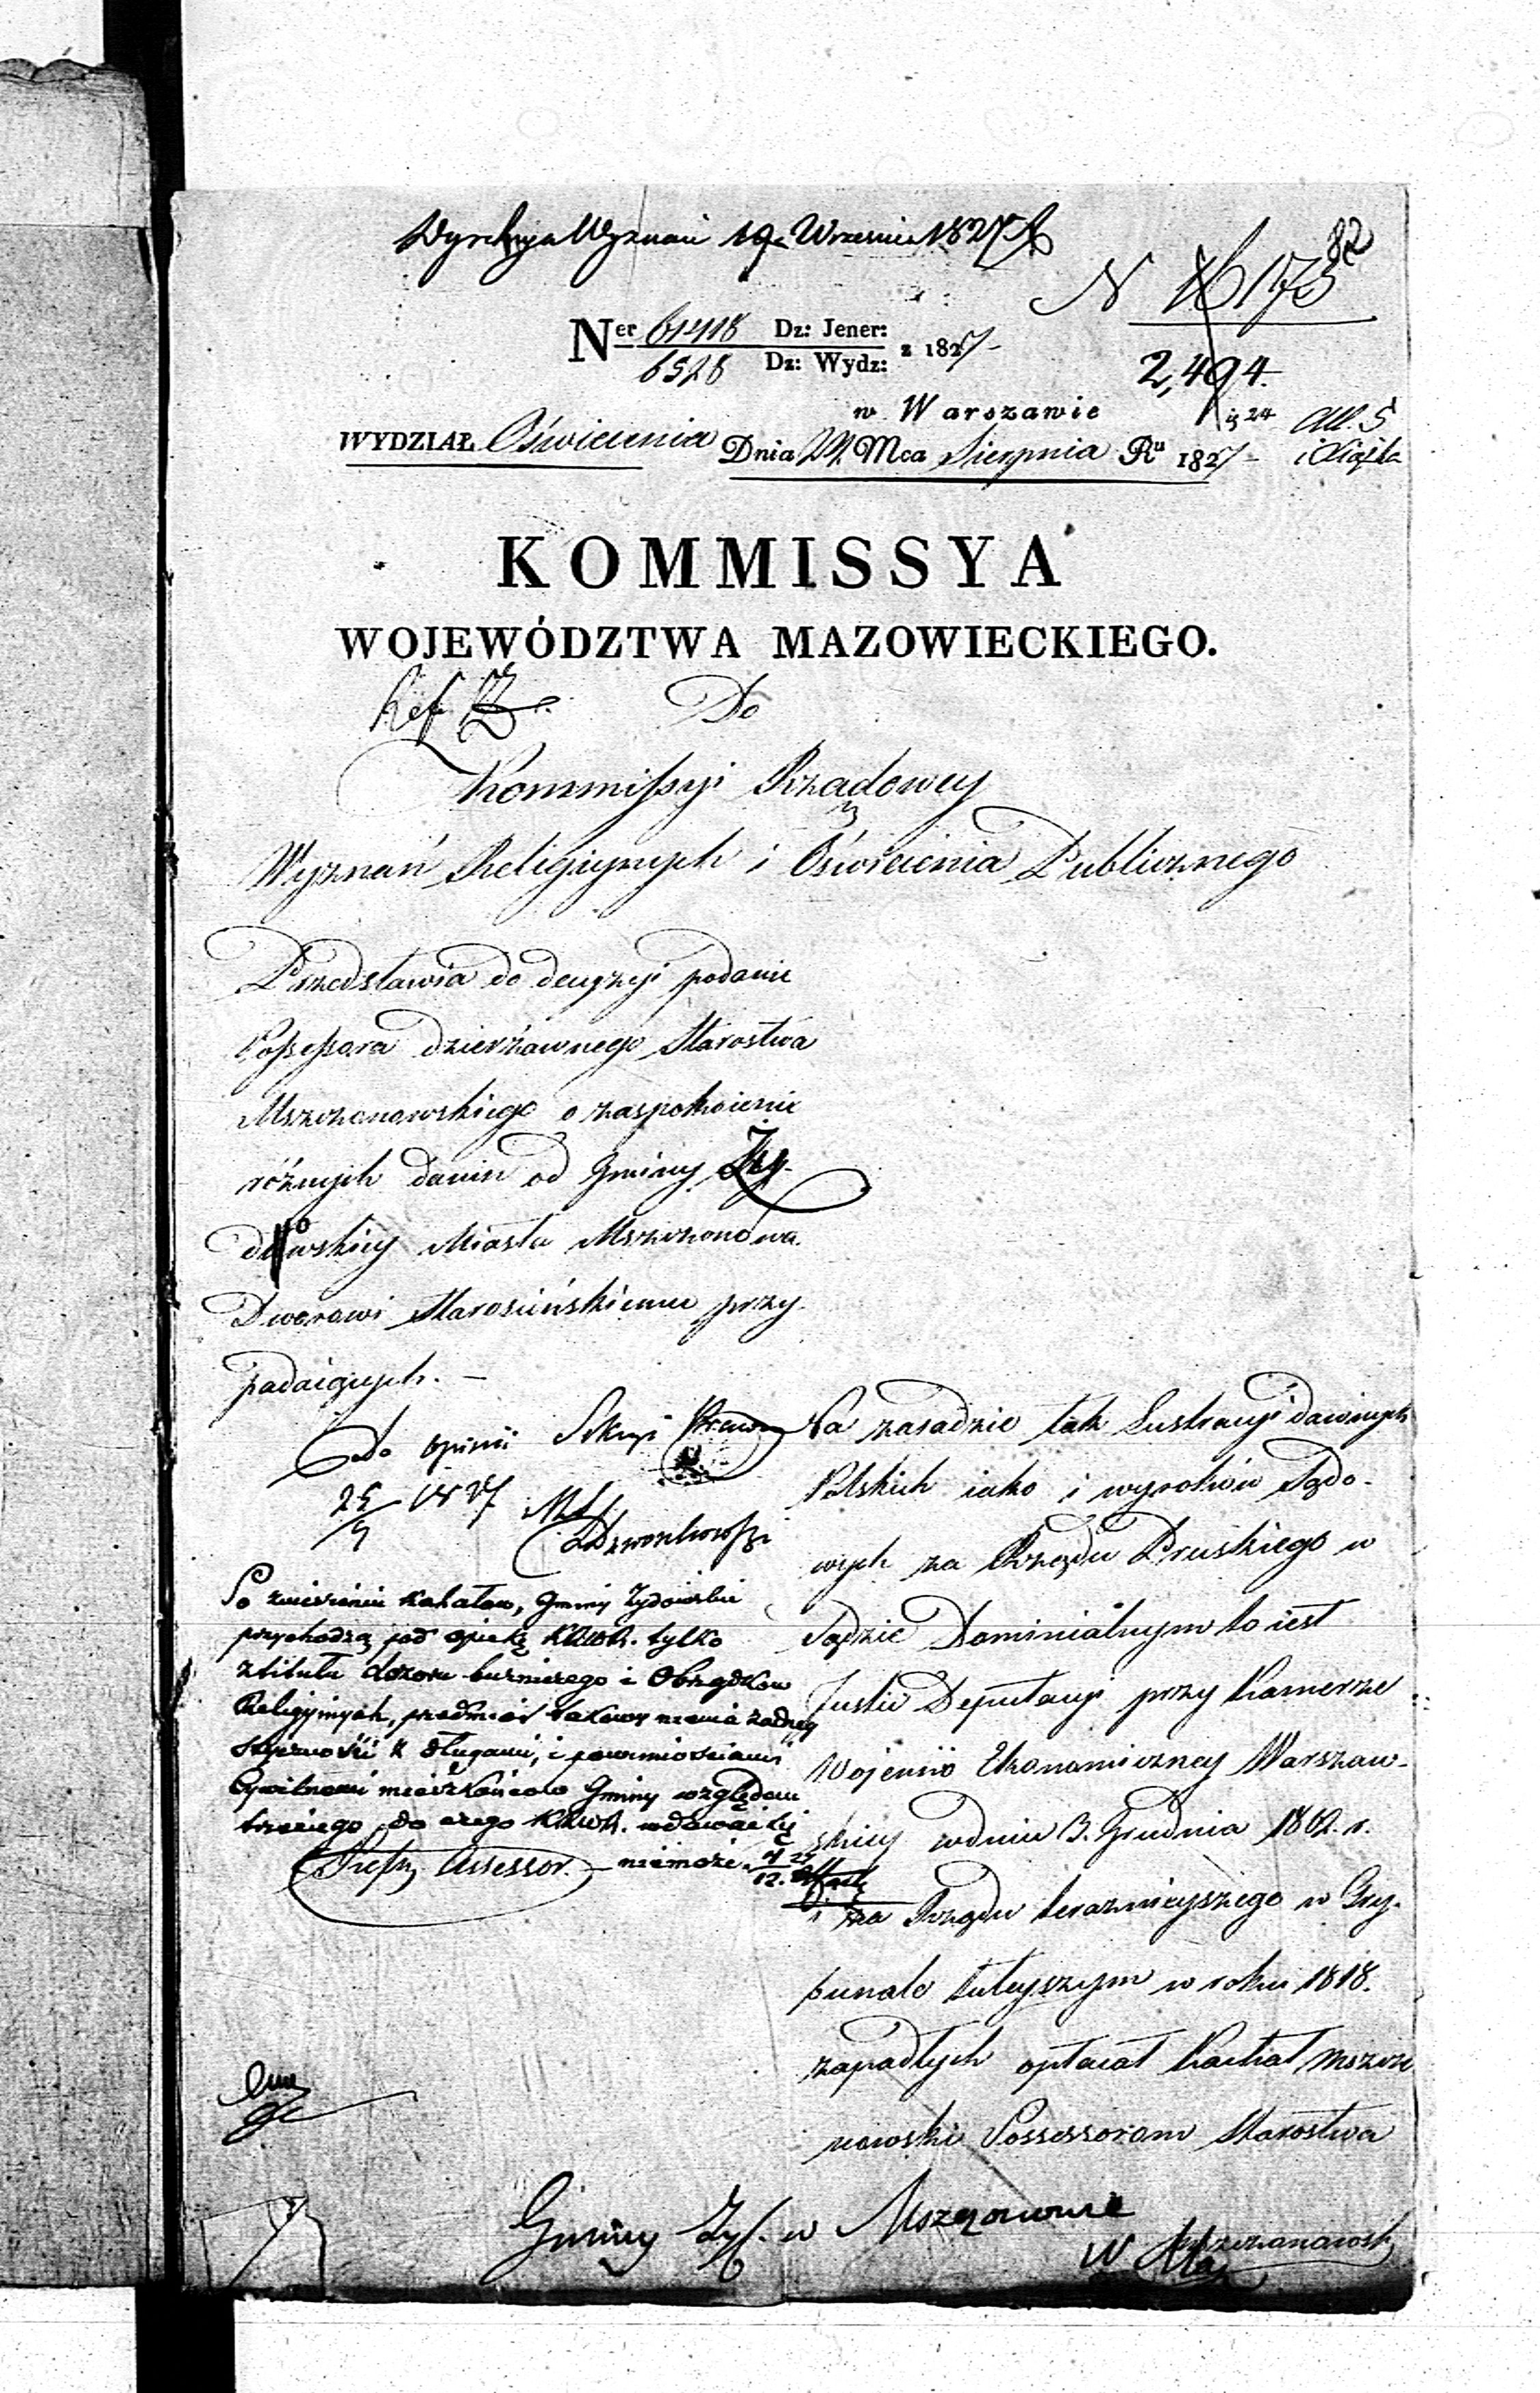 Dyrekcya Wyznań 19 Września 1827
82
N 16173
Ner 61418 Dz: Jener: z 1827
6528 Dz: Wydz:
2,494.
w Warszawie
All. 5
i Xiążka
WYDZIAŁ Oświecenia Dnia 24 Mca Sierpnia Ru 1827
KOMMISSYA
WOJEWÓDZTWA MAZOWIECKIEGO.
Do
Kommissyi Rządowey
Wyznań Religiynych i Oświecenia Publicznego
Przedstawia do decyzyi podanie
Possessora dzierżawnego Starostwa
Mszczonowskiego o zaspokoienie
różnych danin od Gminy Ży-
dowskiey Miasta Mszczonowa
Dworowi Starościńskiemu przy-
padaiących. —
Do opinii Sekcyi Prawney
25/9 1827
Po zniesieniu Kahałow, Gminy Żydowskie
przychodzą pod opiekę KRWR. tylko
z titułu dozoru bużniczego i Obrządkow
Religiynych, przedmiot takowy niema żadney
styczności z długami, i powinnościami
Cywilnemi mieszkańcow Gminy względem
trzeciego, do czego KRWR. wdawać się
niemoże.
Assessor.
Na zasadzie tak Lustracyi dawnych
Polskich iako i wyroków Sądo-
wych za Rządu Pruskiego w
Sądzie Dominialnym to iest
Justic Deputacyi przy Kamerze
Wojenno Ekonomiczney Warszaw-
skiey w dniu 3. Grudnia 1802. r.
i za Rządu teraznieyszego w Try-
bunale tuteyszym w roku 1818.
zapadłych opłacał Kachał Mszczo
nowski Possessorom Starostwa
Mszczonowsk
Gminy Żyd. w Mszczonowie
W Maz